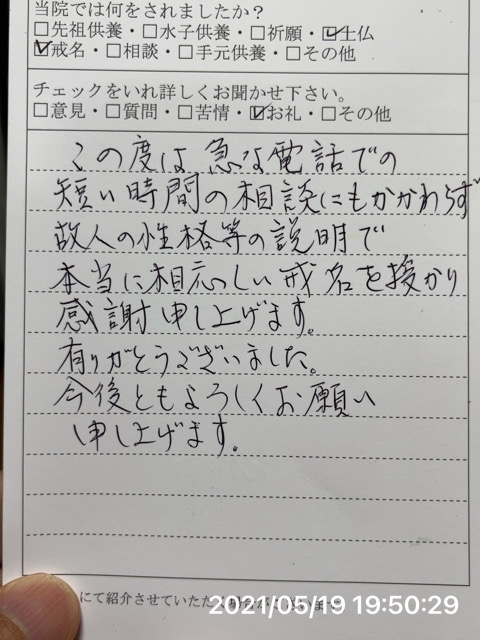 当院では何をされましたか？
□先祖供養・□水子供養・□祈願・☑生仏
☑戒名・□相談・□手元供養・□その他
チェックをいれ詳しくお聞かせ下さい。
□意見・□質問・□苦情・☑お礼・□その他
この度は急な電話での
短い時間の相談にもかかわらず
故人の性格等の説明で
本当に相応しい戒名を授かり
感謝申し上げます。
有りがとうございました。
今後ともよろしくお願い
申し上げます。
にて紹介させていただ
2021/05/19 19:50:29